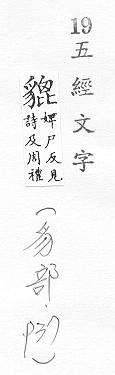 19五經文字
貔婢尸反見
詩及周禮
(豸部.